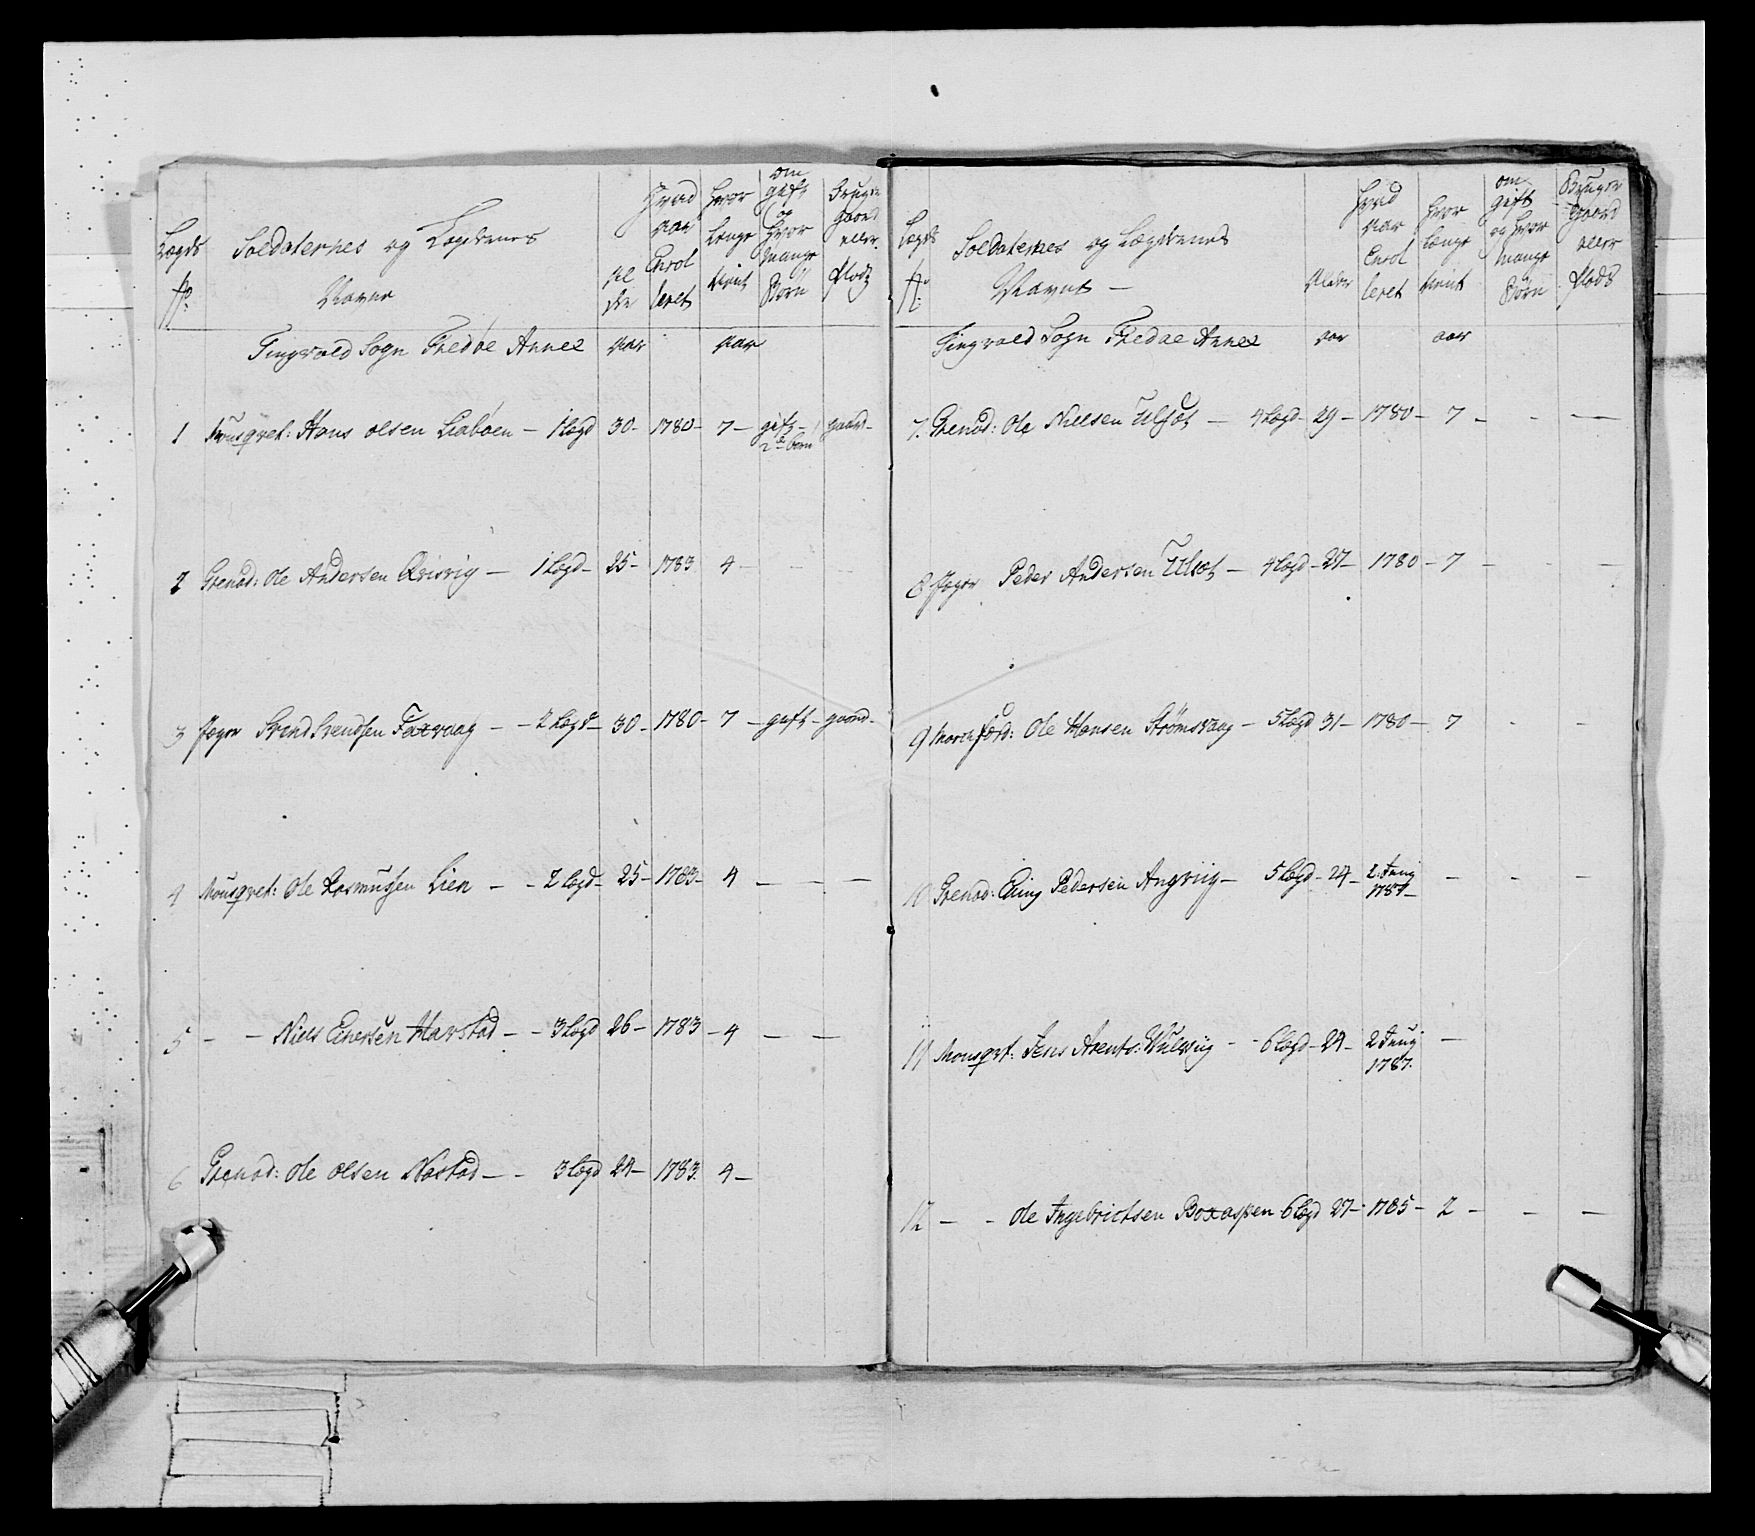 Lægds No
Soldaternes og Lægdernes Navne
Alder
Hvad aar Enrolleret
Hvor længe tient
om gift og hvor mange Børn
Bruger gaard eller Plads
Tingvold Sogn Fredøe Annex aar aar
1 Musqvet: Hans olsen Liabøen – 1 Lægd 30 – 1780 – 7 – gift – 2de børn gaard –
2 Grenad: Ole Andersen Qvisvig – 1 Lægd – 25 – 1783 4 – –
3 Jæger Svend Svendsen Faxvaag – – 2 Lægd – 30 – 1780 – 7 – gift – gaard –
4 Mousqvet: Ole Rasmussen Lien – – 2 Lægd – 25 – 1783 – 4 – – –
5 – – Niels Einersen Harstad – – 3 Lægd 26 – 1783 – 4 – –
6 Grenad: Ole olsen Nastad – – 3 Lægd 24 – 1783. 4 –
Lægds No
Soldaternes og Lægdernes Navne –
Alder
Hvad aar Enrolleret
Hvor længe tient
om gift og hvor mange Børn
Bruger gaard eller Plads
Tingvold Sogn Fredøe Annex aar aar
7. Grenad: Ole Nielsen Ulset – 4 Lægd – 29 – 1780 – 7 – – –
8 Jæger Peder Andersen Ulset – 4 Lægd – 27 – 1780 – 7 – – –
9 Ole Hansen Strømsvaag – 5 Lægd 31 – 1780 – 7 – –
10 Grenad: Pedersen Angvig – 5 Lægd – 24 – 2. Juny 1787 – – – –
11 Mousqvt: Jens Arents: – – 6 Lægd – 24 – 2 Juny 1787. –
12 – – Ole Ingebrictsen Boxaspen 6 Lægd 27 – 1785 – 2 – – –